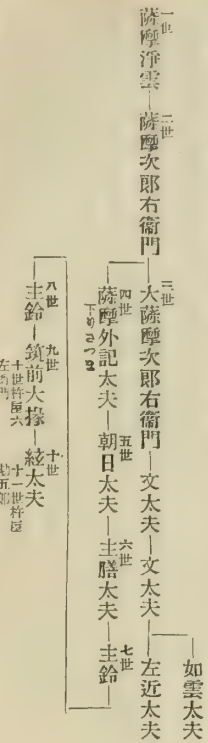 一世
薩摩淨雲
二世
薩摩次郎右衞門
三世
大薩摩次郎右衞門
文太夫
文太夫
左近太夫
如雲太夫
四世
薩摩外記太夫
下りさつま
五世
朝日太夫
六世
主膳太夫
七世
主鈴
八世
主鈴
九世
筑前大掾
十世
絃太夫
十世杵屋六左衞門
十一世杵屋勘五郎